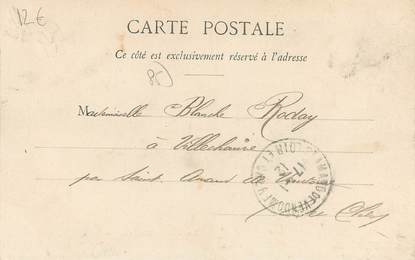 12€
CARTE POSTALE
Ce côté est exclusivement réservé à l'adresse
Mademoiselle Blanche Roday
à Villechauve
par Saint Amand de Vendôme
Loir et Cher